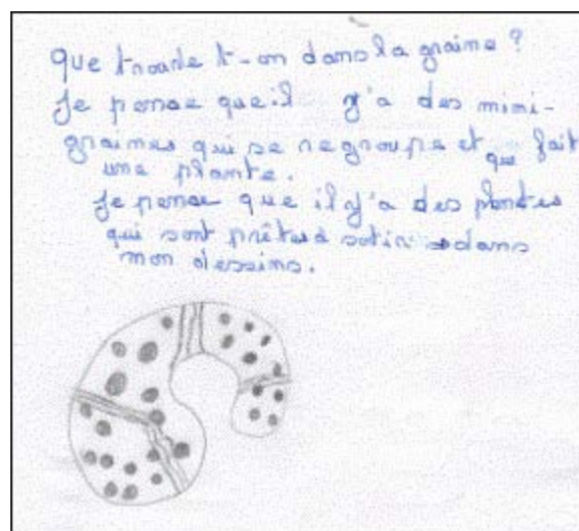 Que trouve t-on dans la graine ?
Je pense que il y'a des mini-
graines qui se regroupe et que fait
une plante.
Je pense que il y'a des plantes
qui sont prêtes à sotir dans
mon dessins.